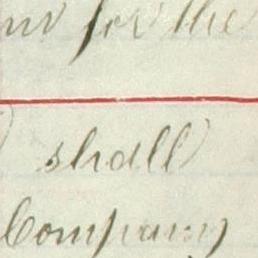 for the
shall
Company